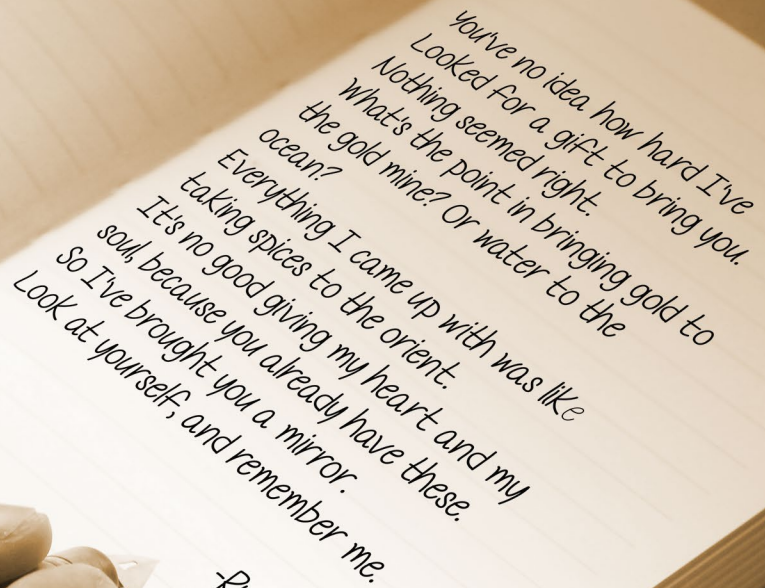 You've no idea how hard I've
Looked for a gift to bring you.
Nothing seemed right.
What's the point in bringing gold to
the gold mine? Or water to the
ocean?
Everything I came up with was like
taking spices to the orient.
It's no good giving my heart and my
soul, because you already have these.
So I've brought you a mirror.
Look at yourself, and remember me.